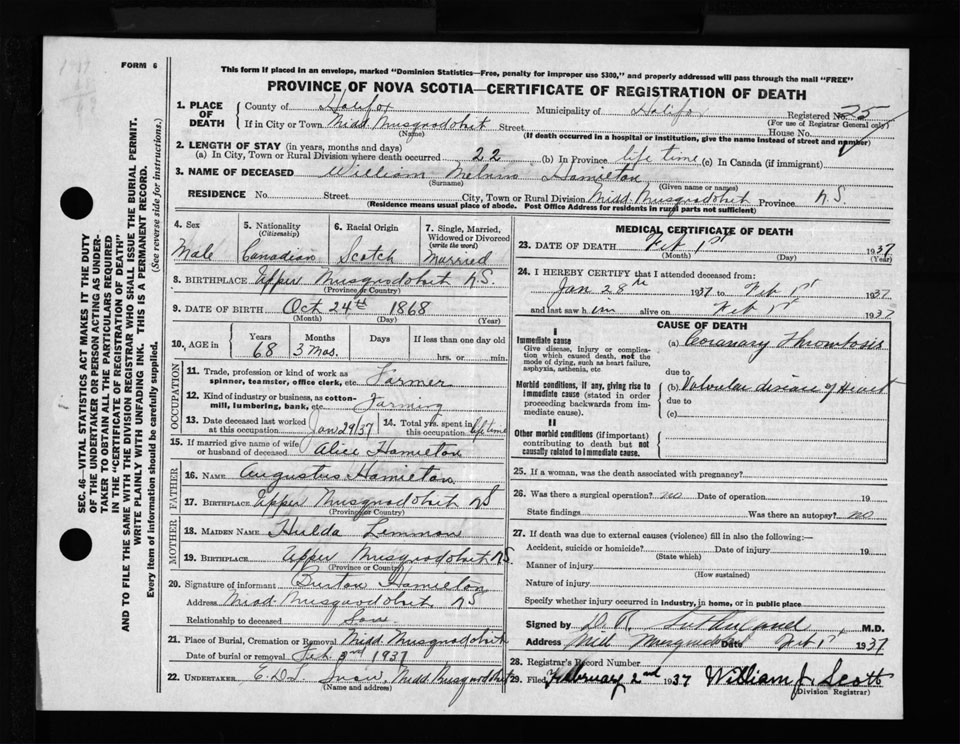 FORM 6
This form if placed in an envelope, marked "Dominion Statistics—Free, penalty for improper use $300," and properly addressed will pass through the mail "FREE"
PROVINCE OF NOVA SCOTIA—CERTIFICATE OF REGISTRATION OF DEATH
1. PLACE OF DEATH
County of Halifax Municipality of Halifax Registered No. 25
(For use of Registrar General only)
If in City or Town Midd. Musquodobit Street House No.
(Name) (If death occurred in a hospital or institution, give the name instead of street and number)
2. LENGTH OF STAY (in years, months and days)
(a) In City, Town or Rural Division where death occurred 22 (b) In Province life time (c) In Canada (if immigrant)
3. NAME OF DECEASED William Melvin Hamilton
(Surname) (Given name or names)
RESIDENCE No. Street City, Town or Rural Division Midd. Musquodobit Province N.S.
(Residence means usual place of abode. Post Office Address for residents in rural parts not sufficient)
4. Sex 5. Nationality (Citizenship) 6. Racial Origin 7. Single, Married, Widowed or Divorced (write the word)
Male Canadian Scotch Married
8. BIRTHPLACE Upper Musquodobit N.S.
(Province or Country)
9. DATE OF BIRTH Oct 24th 1868
(Month) (Day) (Year)
10. AGE in Years Months Days If less than one day old
68 3 Mos. hrs. or min.
OCCUPATION
11. Trade, profession or kind of work as spinner, teamster, office clerk, etc. Farmer
12. Kind of industry or business, as cotton-mill, lumbering, bank, etc. Farming
13. Date deceased last worked at this occupation Jan 29/37 14. Total yrs. spent in this occupation life time
15. If married give name of wife or husband of deceased Alice Hamilton
FATHER
16. NAME Augustus Hamilton
17. BIRTHPLACE Upper Musquodobit N.S
(Province or Country)
MOTHER
18. MAIDEN NAME Hulda Lemmon
19. BIRTHPLACE Upper Musquodobit N.S.
(Province or Country)
20. Signature of informant Burton Hamilton
Address Midd Musquodobit N.S
Relationship to deceased Son
21. Place of Burial, Cremation or Removal Midd Musquodobit
Date of burial or removal Feb 3rd 1937
22. UNDERTAKER Snow, Midd Musquodobit
(Name and address)
MEDICAL CERTIFICATE OF DEATH
23. DATE OF DEATH Feb 1st 1937
(Month) (Day) (Year)
24. I HEREBY CERTIFY that I attended deceased from:
Jan 28th 1937 to Feb 1st 1937
and last saw him alive on Feb 1st 1937
CAUSE OF DEATH
I
Immediate cause
Give disease, injury or complication which caused death, not the mode of dying, such as heart failure, asphyxia, asthenia, etc
(a) Coranary Thrombosis
due to
Morbid conditions, if any, giving rise to immediate cause (stated in order proceeding backwards from immediate cause).
(b) Valvular disease of Heart
due to
(c)
II
Other morbid conditions (if important) contributing to death but not causally related to immediate cause.
25. If a woman, was the death associated with pregnancy?
26. Was there a surgical operation? no Date of operation 19
State findings Was there an autopsy? no
27. If death was due to external causes (violence) fill in also the following:—
Accident, suicide or homicide? Date of injury 19
(State which)
Manner of injury
(How sustained)
Nature of injury
Specify whether injury occurred in industry, in home, or in public place
Signed by D. R. Sutherland M.D.
Address Mid Musquodobit Date Feb 1st 1937
28. Registrar's Record Number
29. Filed February 2nd 1937 William J. Scott
(Division Registrar)
SEC. 46—VITAL STATISTICS ACT MAKES IT THE DUTY
OF THE UNDERTAKER OR PERSON ACTING AS UNDER-
TAKER TO OBTAIN ALL THE PARTICULARS REQUIRED
IN THE "CERTIFICATE OF REGISTRATION OF DEATH"
AND TO FILE THE SAME WITH THE DIVISION REGISTRAR WHO SHALL ISSUE THE BURIAL PERMIT.
WRITE PLAINLY WITH UNFADING INK. THIS IS A PERMANENT RECORD.
Every item of information should be carefully supplied. (See reverse side for instructions.)